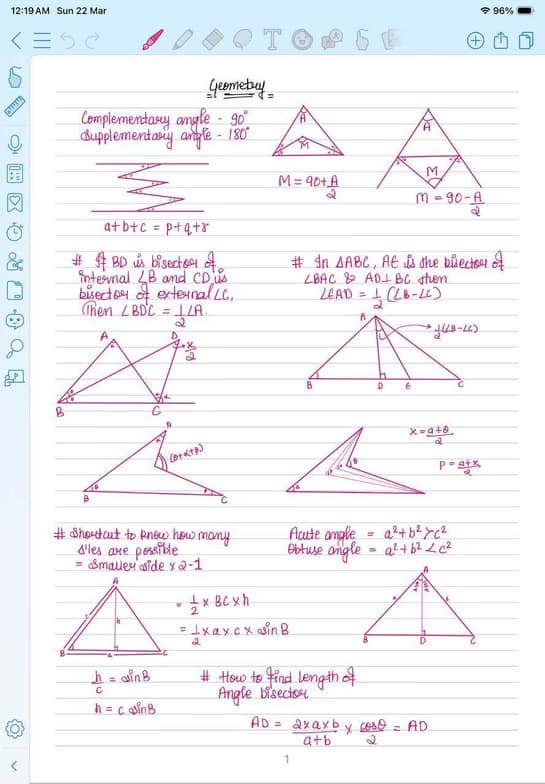 12:19 AM Sun 22 Mar
96%
Geometry
Complementary angle - 90°
Supplementary angle - 180°
A
M
M = 90 + A/2
A
M
M = 90 - A/2
a + b + c = p + q + r
# If BD is bisector of
internal ∠B and CD is
bisector of external ∠C,
Then ∠BDC = 1/2 ∠A.
# In △ABC, AE is the bisector of
∠BAC & AD ⊥ BC then
∠EAD = 1/2 (∠B - ∠C)
A
D
x/2
B
C
A
1/2 (∠B - ∠C)
B
D
E
C
A
B
C
x = a+θ/2
P = a+x/2
# Shortcut to know how many
△'les are possible
= Smaller side x 2 - 1
Acute angle = a² + b² > c²
Obtuse angle = a² + b² < c²
A
c
h
B
a
C
= 1/2 x BC x h
= 1/2 x a x c x sin B
A
a
b
B
D
C
h/c = sin B
h = c sin B
# How to find length of
Angle bisector
AD = 2 x a x b / a + b x cos θ/2 = AD
1